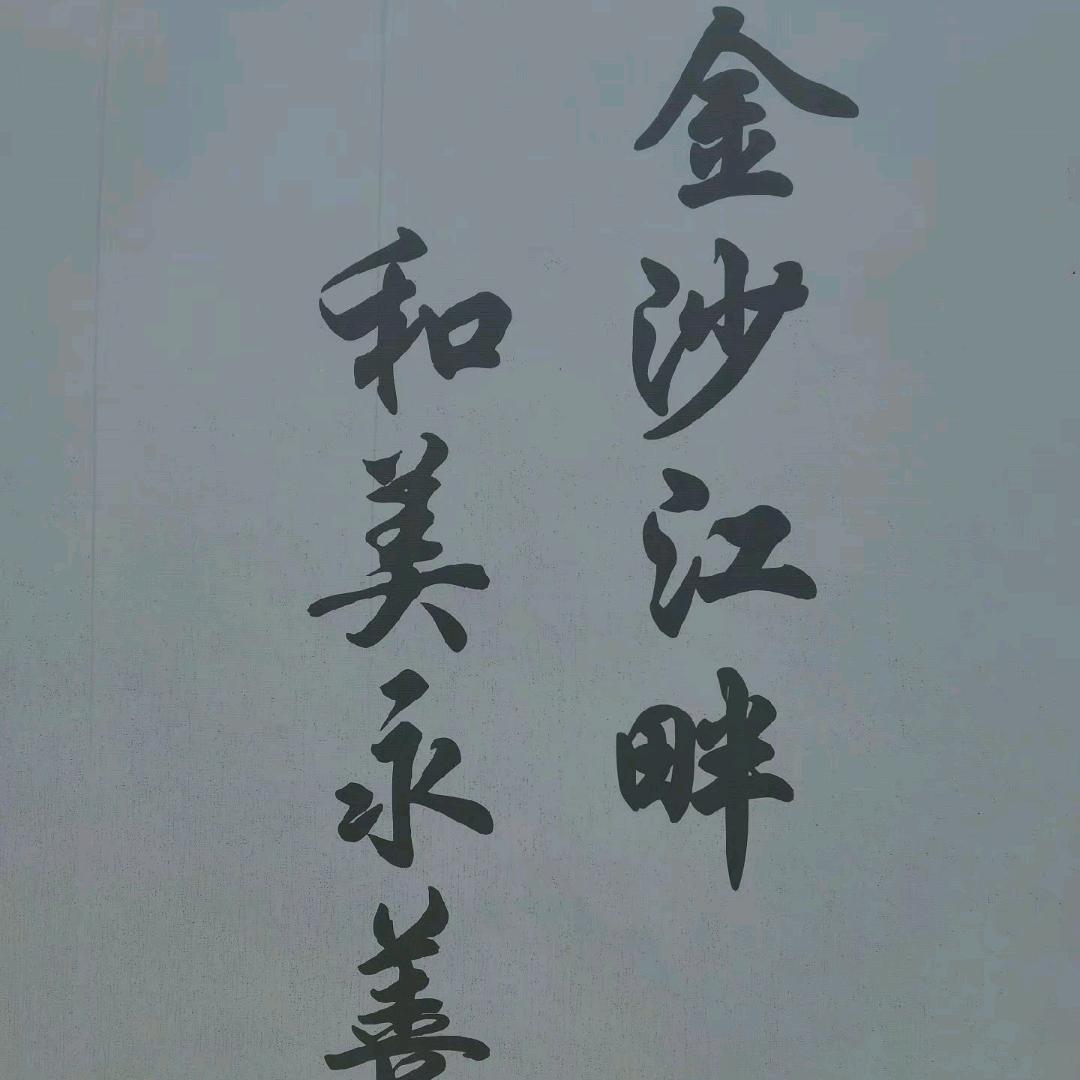 金沙江畔
和美永善